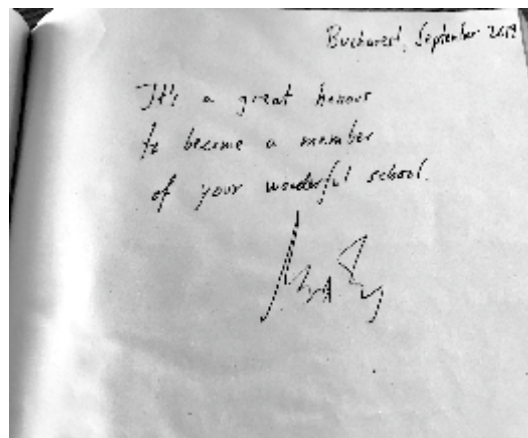 Bucharest, September 2019
It's a great honour
to become a member
of your wonderful school.